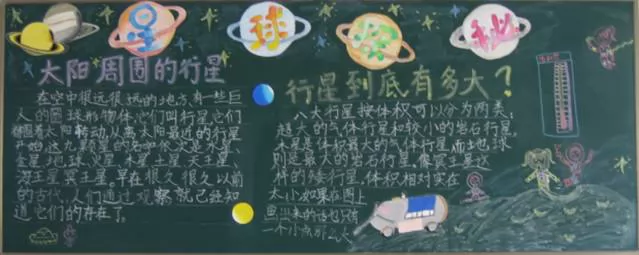 星球探秘
太阳周围的行星
在空中很远很远的地方,有一些巨
人的圆球形物体,它们叫行星,它们
都围着太阳转动,从离太阳最近的行星
开始这九颗星的名字依次是水星
金星、地球、火星、木星、土星、天王星、
海王星、冥王星。早在很久很久以前
的古代,人们通过观察就已经知
道它们的存在了。
行星到底有多大?
八大行星按体积可以分为两类:
超人的气体行星和较小的岩石行星,
木星是体积最大的气体行星,而地球
则是最大的岩石行星。像冥王星这
样的矮行星,体积相对实在
太小,如果在图上
来的话也只有
一个小点那么大